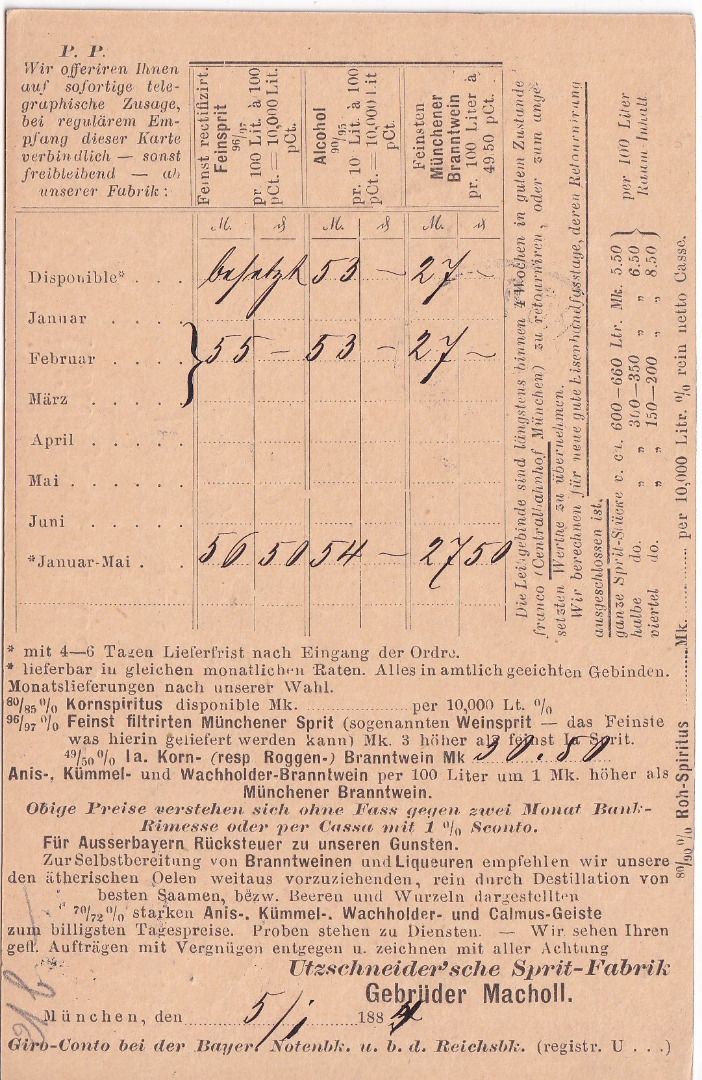 P. P.
Wir offeriren Ihnen
auf sofortige tele-
graphische Zusage,
bei regulärem Em-
pfang dieser Karte
verbindlich — sonst
freibleibend — ab
unserer Fabrik:
Feinst rectifizirt.
Feinsprit
96/97
pr 100 Lit. à 100
pCt. = 10,000 Lit.
pCt.
Alcohol
90/95
pr. 10 Lit. à 100
pCt. = 10,000 Lit
pCt.
Feinsten
Münchener
Branntwein
pr. 100 Liter à
49 50 pCt.
M. ₰ M. ₰ M. ₰
Disponible* . . . besetzt 53 — 27 —
Januar . . . .
Februar . . . . 55 — 53 — 27 —
März . . . .
April . . . . .
Mai . . . . . .
Juni . . . . .
*Januar-Mai . 56 50 54 — 27 50
Die Leihgebinde sind längstens binnen 4 Wochen in gutem Zustande
franco (Centralbahnhof München) zu retourniren, oder zum ange-
setzten Werthe zu übernehmen.
Wir berechnen für neue gute Eisenbandfusstage, deren Retournirung
ausgeschlossen ist,
ganze Sprit-Stücke v. ca. 600—660 Ltr. Mk. 5.50
halbe do. „ „ 300—350 „ „ 6.50
viertel do. „ „ 150—200 „ „ 8.50
per 100 Liter
Raum Inhalt.
80/90 % Roh-Spiritus Mk. per 10,000 Litr. % rein netto Casse.
* mit 4—6 Tagen Lieferfrist nach Eingang der Ordre.
* lieferbar in gleichen monatlichen Raten. Alles in amtlich geeichten Gebinden.
Monatslieferungen nach unserer Wahl.
80/85 % Kornspiritus disponible Mk. per 10,000 Lt. %
96/97 % Feinst filtrirten Münchener Sprit (sogenannten Weinsprit — das Feinste
was hierin geliefert werden kann) Mk. 3 höher als feinst Ia Sprit.
49/50 % Ia. Korn- (resp Roggen-) Branntwein Mk 30.80
Anis-, Kümmel- und Wachholder-Branntwein per 100 Liter um 1 Mk. höher als
Münchener Branntwein.
Obige Preise verstehen sich ohne Fass gegen zwei Monat Bank-
Rimesse oder per Cassa mit 1 % Sconto.
Für Ausserbayern Rücksteuer zu unseren Gunsten.
Zur Selbstbereitung von Branntweinen und Liqueuren empfehlen wir unsere
den ätherischen Oelen weitaus vorzuziehenden, rein durch Destillation von
besten Saamen, bezw. Beeren und Wurzeln dargestellten
70/72 % starken Anis-, Kümmel-, Wachholder- und Calmus-Geiste
zum billigsten Tagespreise. Proben stehen zu Diensten. — Wir sehen Ihren
gefl. Aufträgen mit Vergnügen entgegen u. zeichnen mit aller Achtung
Utzschneider'sche Sprit-Fabrik
Gebrüder Macholl.
München, den 5/1 1884
Giro-Conto bei der Bayer. Notenbk. u. b. d. Reichsbk. (registr. U . . .)